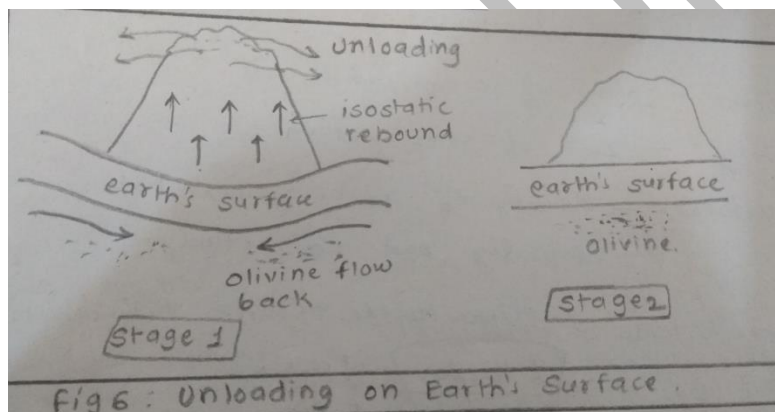 unloading
isostatic
rebound
earth's surface
olivine flow
back
Stage 1
earth's surface
olivine.
Stage2
Fig 6 : Unloading on Earth's Surface.